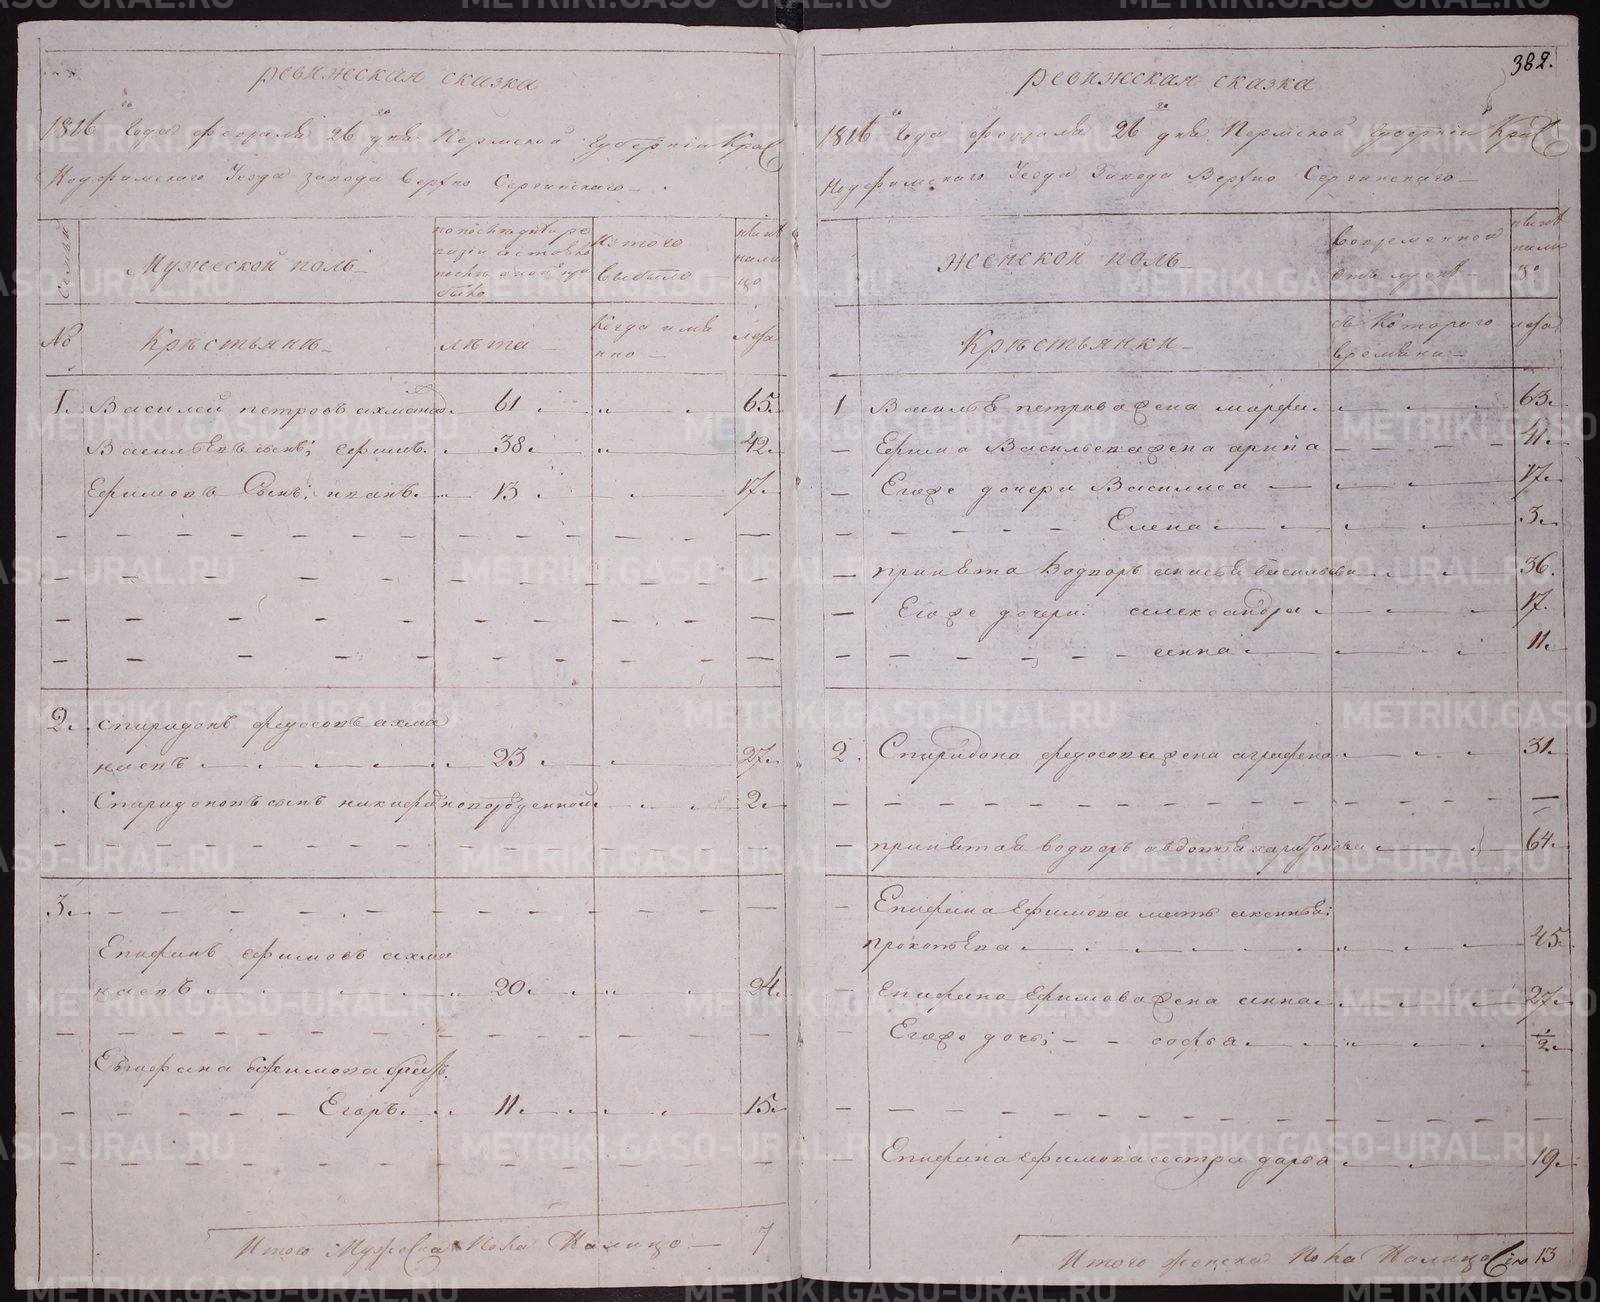 ревижская сказка
1816 го года февраля 26 го дня Пермской губернии Крас
ноуфимского Уезда завода Верхно Сергинского
Семьи
Мужеской полъ
по последнюю ре
визи состояло
и после оной
было
Из того
выбыло
ныне
нали
цо
№
Крестьяне
лета
когда имя
нно
лета
1. Василей петровъ ахманаевъ 61 65
Васильевъ сынъ ефимъ 38 42
Ефимовъ Сынъ иванъ 13 17
2. спиридонъ федосовъ ахма
наевъ 23 27
Спиридоновъ сынъ никифоръ новорожденной 2
3.
Епифанъ ефимовъ ахма
наевъ 20 24
Епифана ефимова братъ
Егоръ 11 15
Итого Мужеска пола Налицо 7
382.
ревижская сказка
1816 го года февраля 26 го дня Пермской губернии Крас
ноуфимского Уезда Завода Верхно Сергинского
женской полъ
во временной
отлучке
ныне
нали
цо
Крестьянки
съ которого
времяни
лета
1 Василья петрова жена марфа 63
Ефима Васильева жена арина 41
Егоже дочери Василиса 17
Елена 3
принята водворъ анисья васильева 36
Егоже дочери александра 17
анна 11
2. Спиридона федосова жена аграфена 31
принятая водворъ авдотья харитонова 64
Епифана Ефимова мать аксинья
прокопьева 45
Епифана Ефимова жена анна 27
Егоже дочь софья 1/2
Епифана ефимова сестра дарья 19
Итого женска пола Налицо 13
METRIKI.GASO-URAL.RU